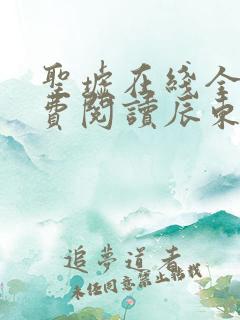 聖墟在綫全
費閱讀辰東
追夢道者
未经同意禁止转载